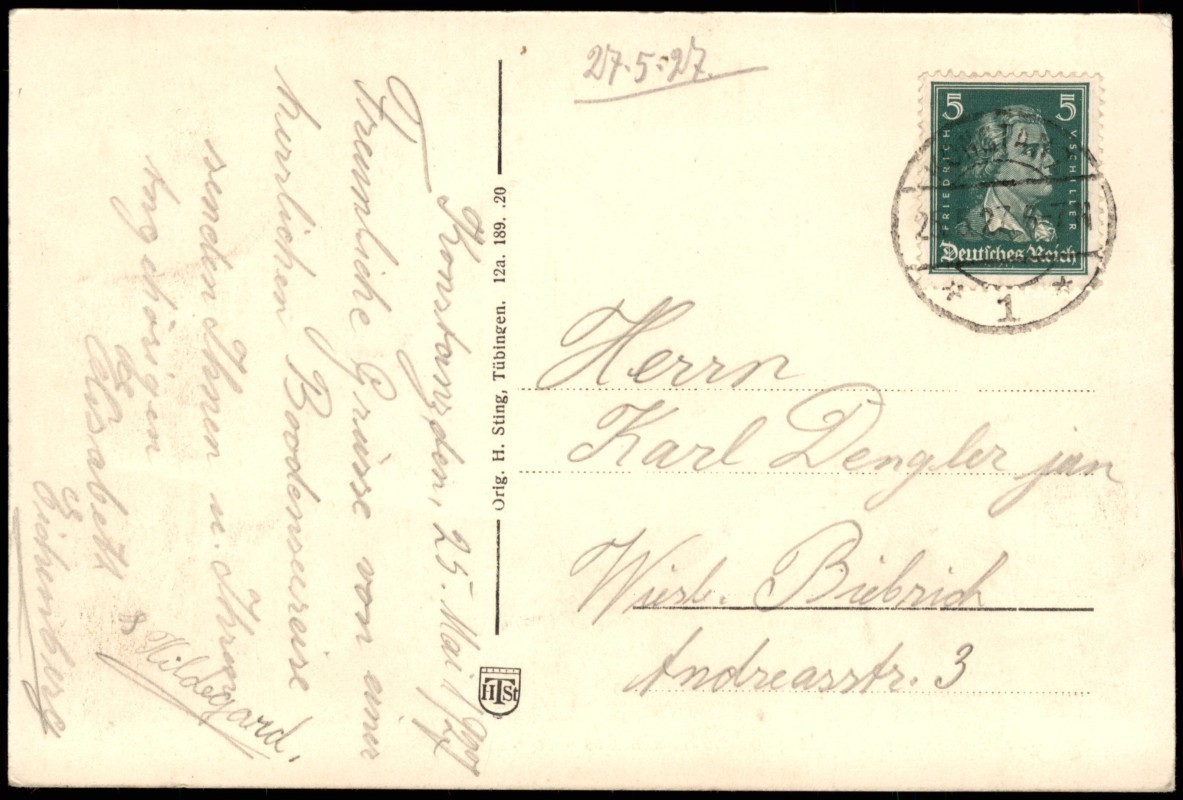 Konstanz, den, 25. Mai 1927
Freundliche Grüsse von einer
herrlichen Boodenseereise
senden Ihnen u. Ihren
Angehörigen
Elisabeth
Eichenberg
& Hildegard.
Orig. H. Sting, Tübingen. 12a. 189. .20
HTSt
27.5.27.
5 5
FRIEDRICH V. SCHILLER
Deutsches Reich
KONSTANZ
1
Herrn
Karl Dengler jun
Wiesb. Biebrich
Andreasstr. 3